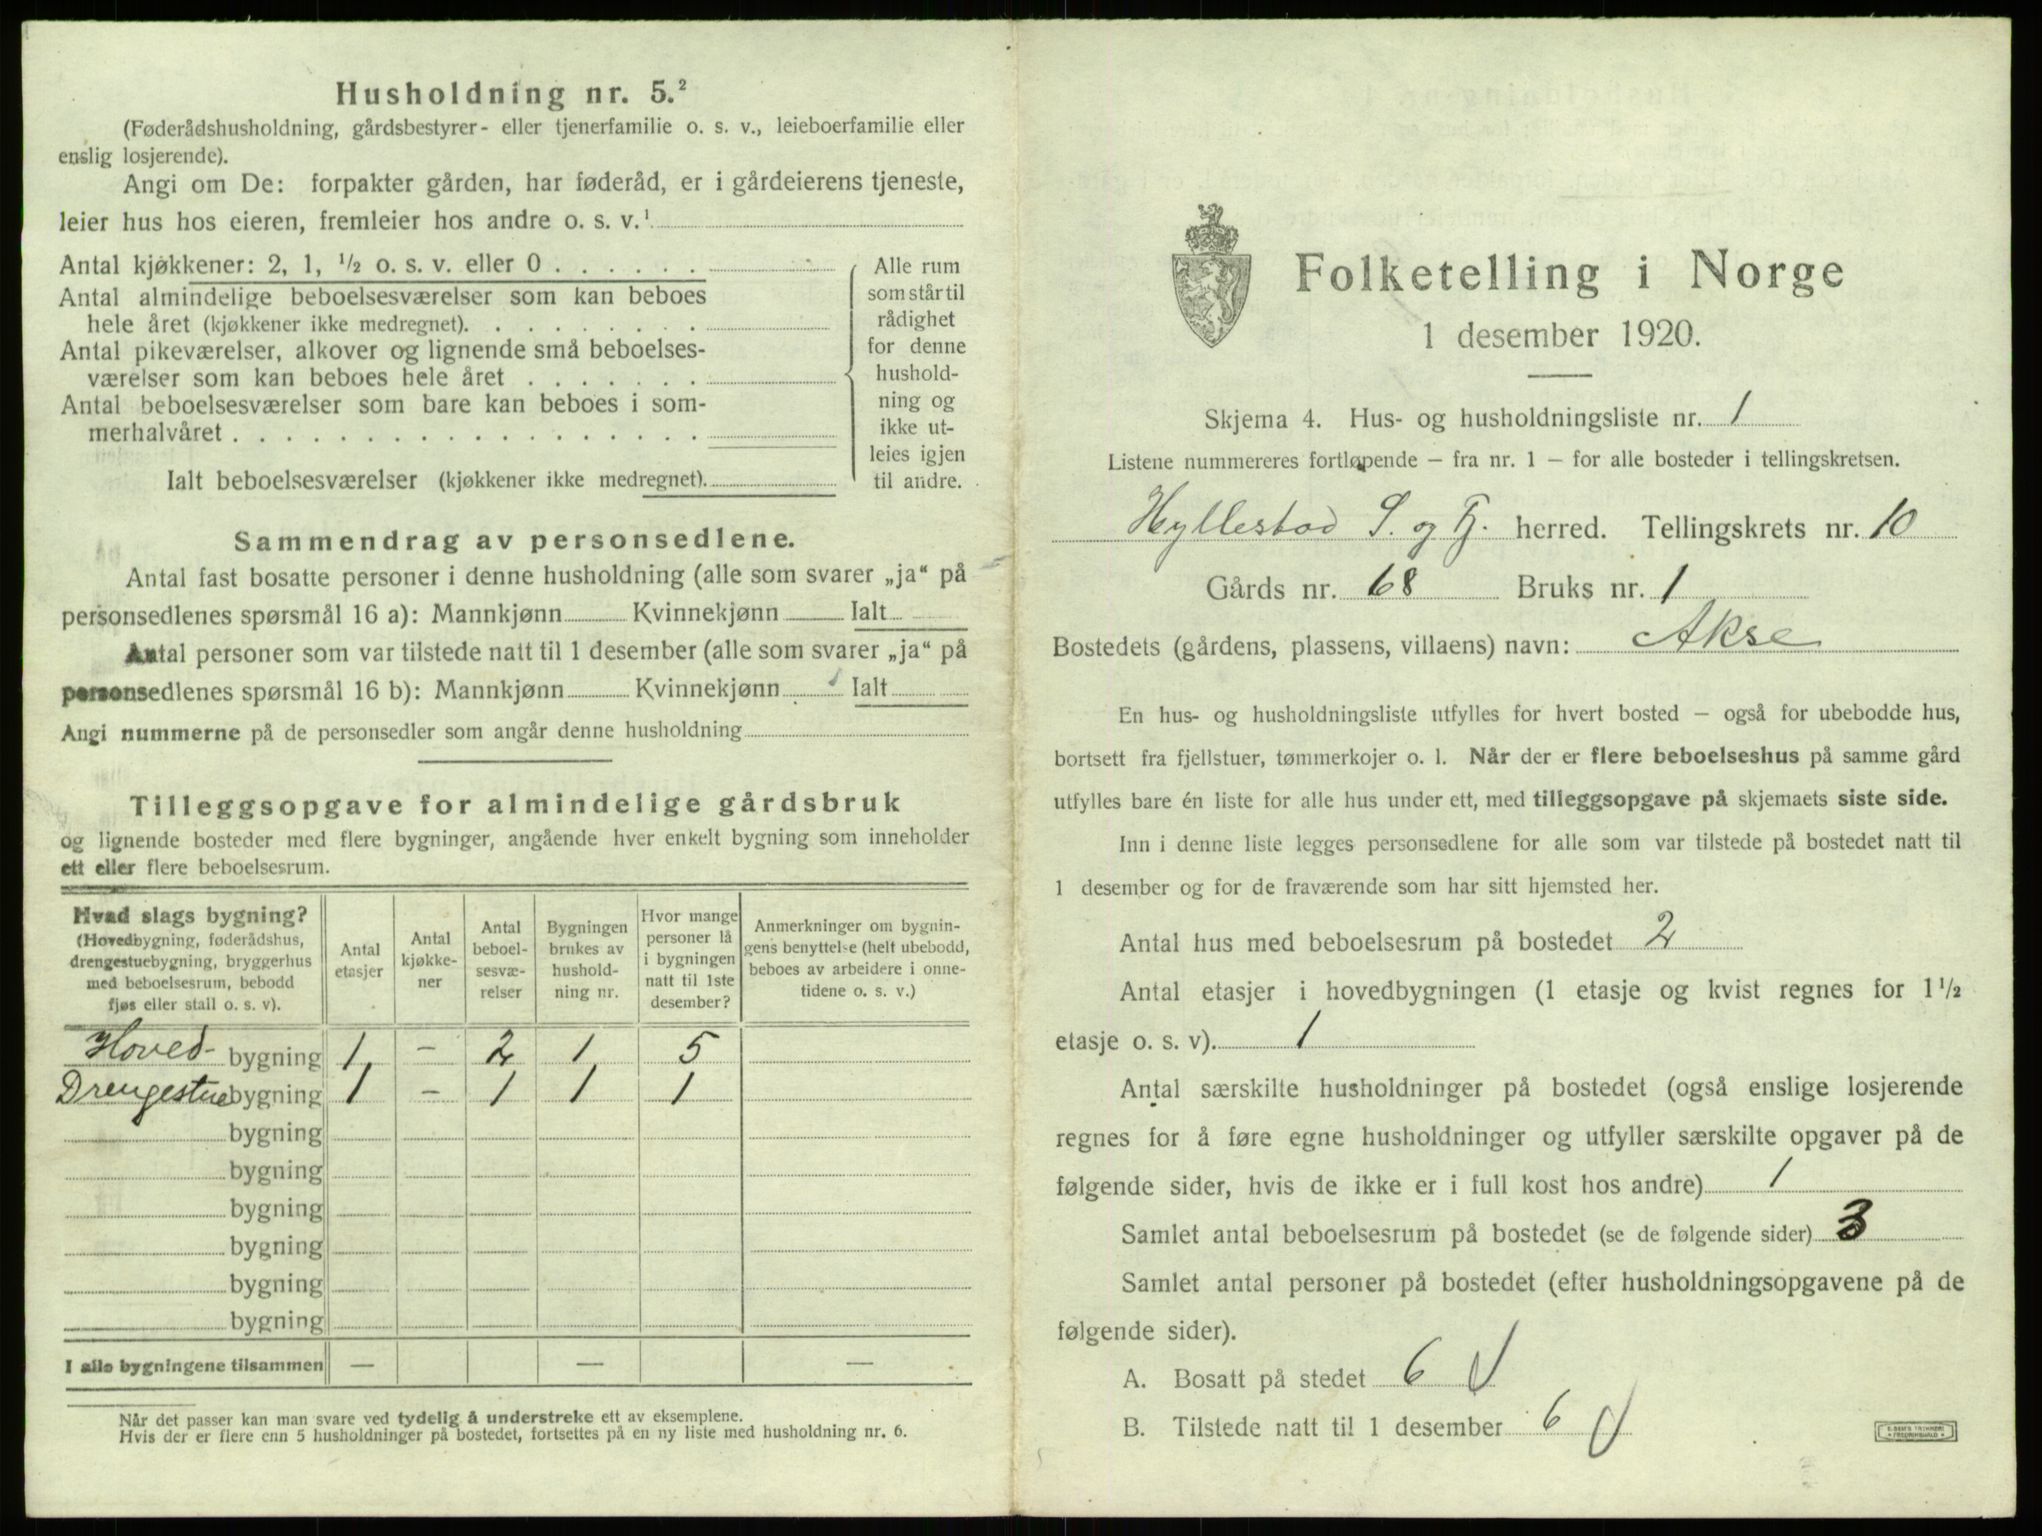 Husholdning nr. 5.²
(Føderådshusholdning, gårdsbestyrer- eller tjenerfamilie o. s. v., leieboerfamilie eller
enslig losjerende).
Angi om De: forpakter gården, har føderåd, er i gårdeierens tjeneste,
leier hus hos eieren, fremleier hos andre o. s. v.¹
Antal kjøkkener: 2, 1, ½ o. s. v. eller 0 . . . . . .
Antal almindelige beboelsesværelser som kan beboes
hele året (kjøkkener ikke medregnet). . . . . . . . .
Antal pikeværelser, alkover og lignende små beboelses-
værelser som kan beboes hele året . . . . . . .
Antal beboelsesværelser som bare kan beboes i som-
merhalvåret . . . . . . . . . . . . . . . . . .
Ialt beboelsesværelser (kjøkkener ikke medregnet).
Alle rum
som står til
rådighet
for denne
hushold-
ning og
ikke ut-
leies igjen
til andre.
Sammendrag av personsedlene.
Antal fast bosatte personer i denne husholdning (alle som svarer „ja“ på
personsedlenes spørsmål 16 a): Mannkjønn Kvinnekjønn Ialt
Antal personer som var tilstede natt til 1 desember (alle som svarer „ja“ på
personsedlenes spørsmål 16 b): Mannkjønn Kvinnekjønn Ialt
Angi nummerne på de personsedler som angår denne husholdning
Tilleggsopgave for almindelige gårdsbruk
og lignende bosteder med flere bygninger, angående hver enkelt bygning som inneholder
ett eller flere beboelsesrum.
Hvad slags bygning?
(Hovedbygning, føderådshus,
drengestuebygning, bryggerhus
med beboelsesrum, bebodd
fjøs eller stall o. s. v).
Antal
etasjer
Antal
kjøkke-
ner
Antal
beboel-
sesvæ-
relser
Bygningen
brukes av
hushold-
ning nr.
Hvor mange
personer lå
i bygningen
natt til 1ste
desember?
Anmerkninger om bygnin-
gens benyttelse (helt ubebodd,
beboes av arbeidere i onne-
tidene o. s. v.)
Hoved- bygning 1 - 2 1 5
Drengestue bygning 1 - 1 1 1
bygning
bygning
bygning
bygning
bygning
bygning
I alle bygningene tilsammen — — —
Når det passer kan man svare ved tydelig å understreke ett av eksemplene.
Hvis der er flere enn 5 husholdninger på bostedet, fortsettes på en ny liste med husholdning nr. 6.
Folketelling i Norge
1 desember 1920.
Skjema 4. Hus- og husholdningsliste nr. 1
Listene nummereres fortløpende – fra nr. 1 – for alle bosteder i tellingskretsen.
Hyllestad S. og Fj. herred. Tellingskrets nr. 10
Gårds nr. 68 Bruks nr. 1
Bostedets (gårdens, plassens, villaens) navn: Akse
En hus- og husholdningsliste utfylles for hvert bosted – også for ubebodde hus,
bortsett fra fjellstuer, tømmerkojer o. l. Når der er flere beboelseshus på samme gård
utfylles bare én liste for alle hus under ett, med tilleggsopgave på skjemaets siste side.
Inn i denne liste legges personsedlene for alle som var tilstede på bostedet natt til
1 desember og for de fraværende som har sitt hjemsted her.
Antal hus med beboelsesrum på bostedet 2
Antal etasjer i hovedbygningen (1 etasje og kvist regnes for 1½
etasje o. s. v). 1
Antal særskilte husholdninger på bostedet (også enslige losjerende
regnes for å føre egne husholdninger og utfyller særskilte opgaver på de
følgende sider, hvis de ikke er i full kost hos andre) 1
Samlet antal beboelsesrum på bostedet (se de følgende sider) 3
Samlet antal personer på bostedet (efter husholdningsopgavene på de
følgende sider).
A. Bosatt på stedet 6
B. Tilstede natt til 1 desember 6